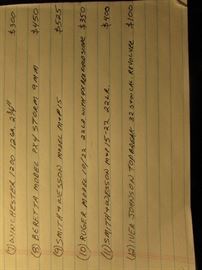 (7) WINCHESTER 1200 12GA. 2 3/4" $300
(8) BERETTA MODEL PX4 STORM 9MM $450
(9) SMITH & WESSON MODEL M&P 15 $525
(10) RUGER MODEL 10/22 22LR WITH SCOPE $350
(11) SMITH & WESSON M&P 15-22 22LR. $400
(12) IVER JOHNSON TOP BREAK 32 S&W CAL REVOLVER $100